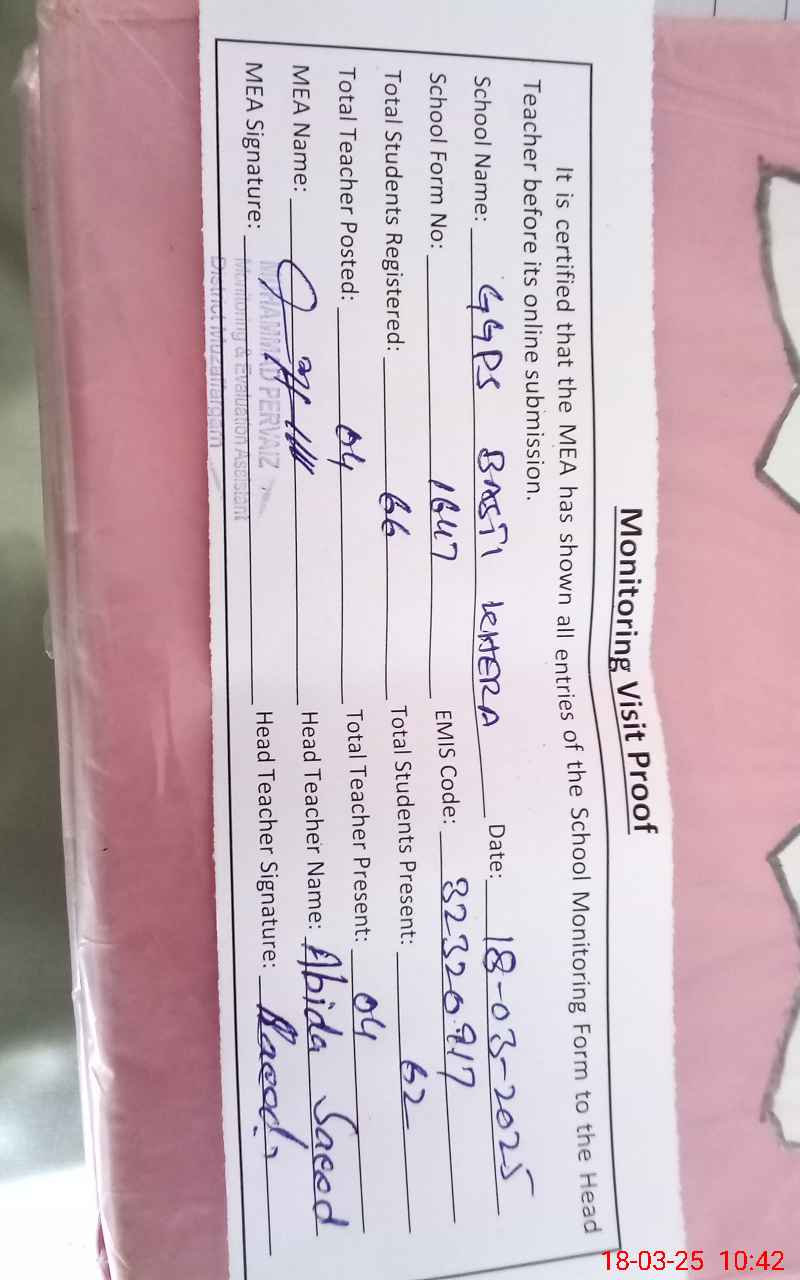 Monitoring Visit Proof
It is certified that the MEA has shown all entries of the School Monitoring Form to the Head
Teacher before its online submission.
School Name: GGPS BASTI KHERA Date: 18-03-2025
School Form No: 1647 EMIS Code: 32320917
Total Students Registered: 66 Total Students Present: 62
Total Teacher Posted: 04 Total Teacher Present: 04
MEA Name: Head Teacher Name: Abida Saeed
MEA Signature: Head Teacher Signature: Saeed
MUHAMMAD PERVAIZ
Monitoring & Evaluation Assistant
District Muzaffargarh
18-03-25 10:42